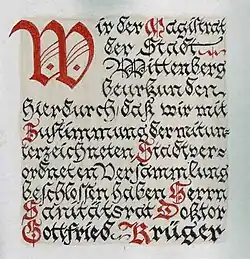 Wir der Magistrat
der Stadt
Wittenberg
beurkunden
hierdurch, daß wir mit
Zustimmung der mitun-
terzeichneten Stadtver-
ordneten Versammlung
beschlossen haben Herrn
Sanitätsrat Doktor
Gottfried Krüger